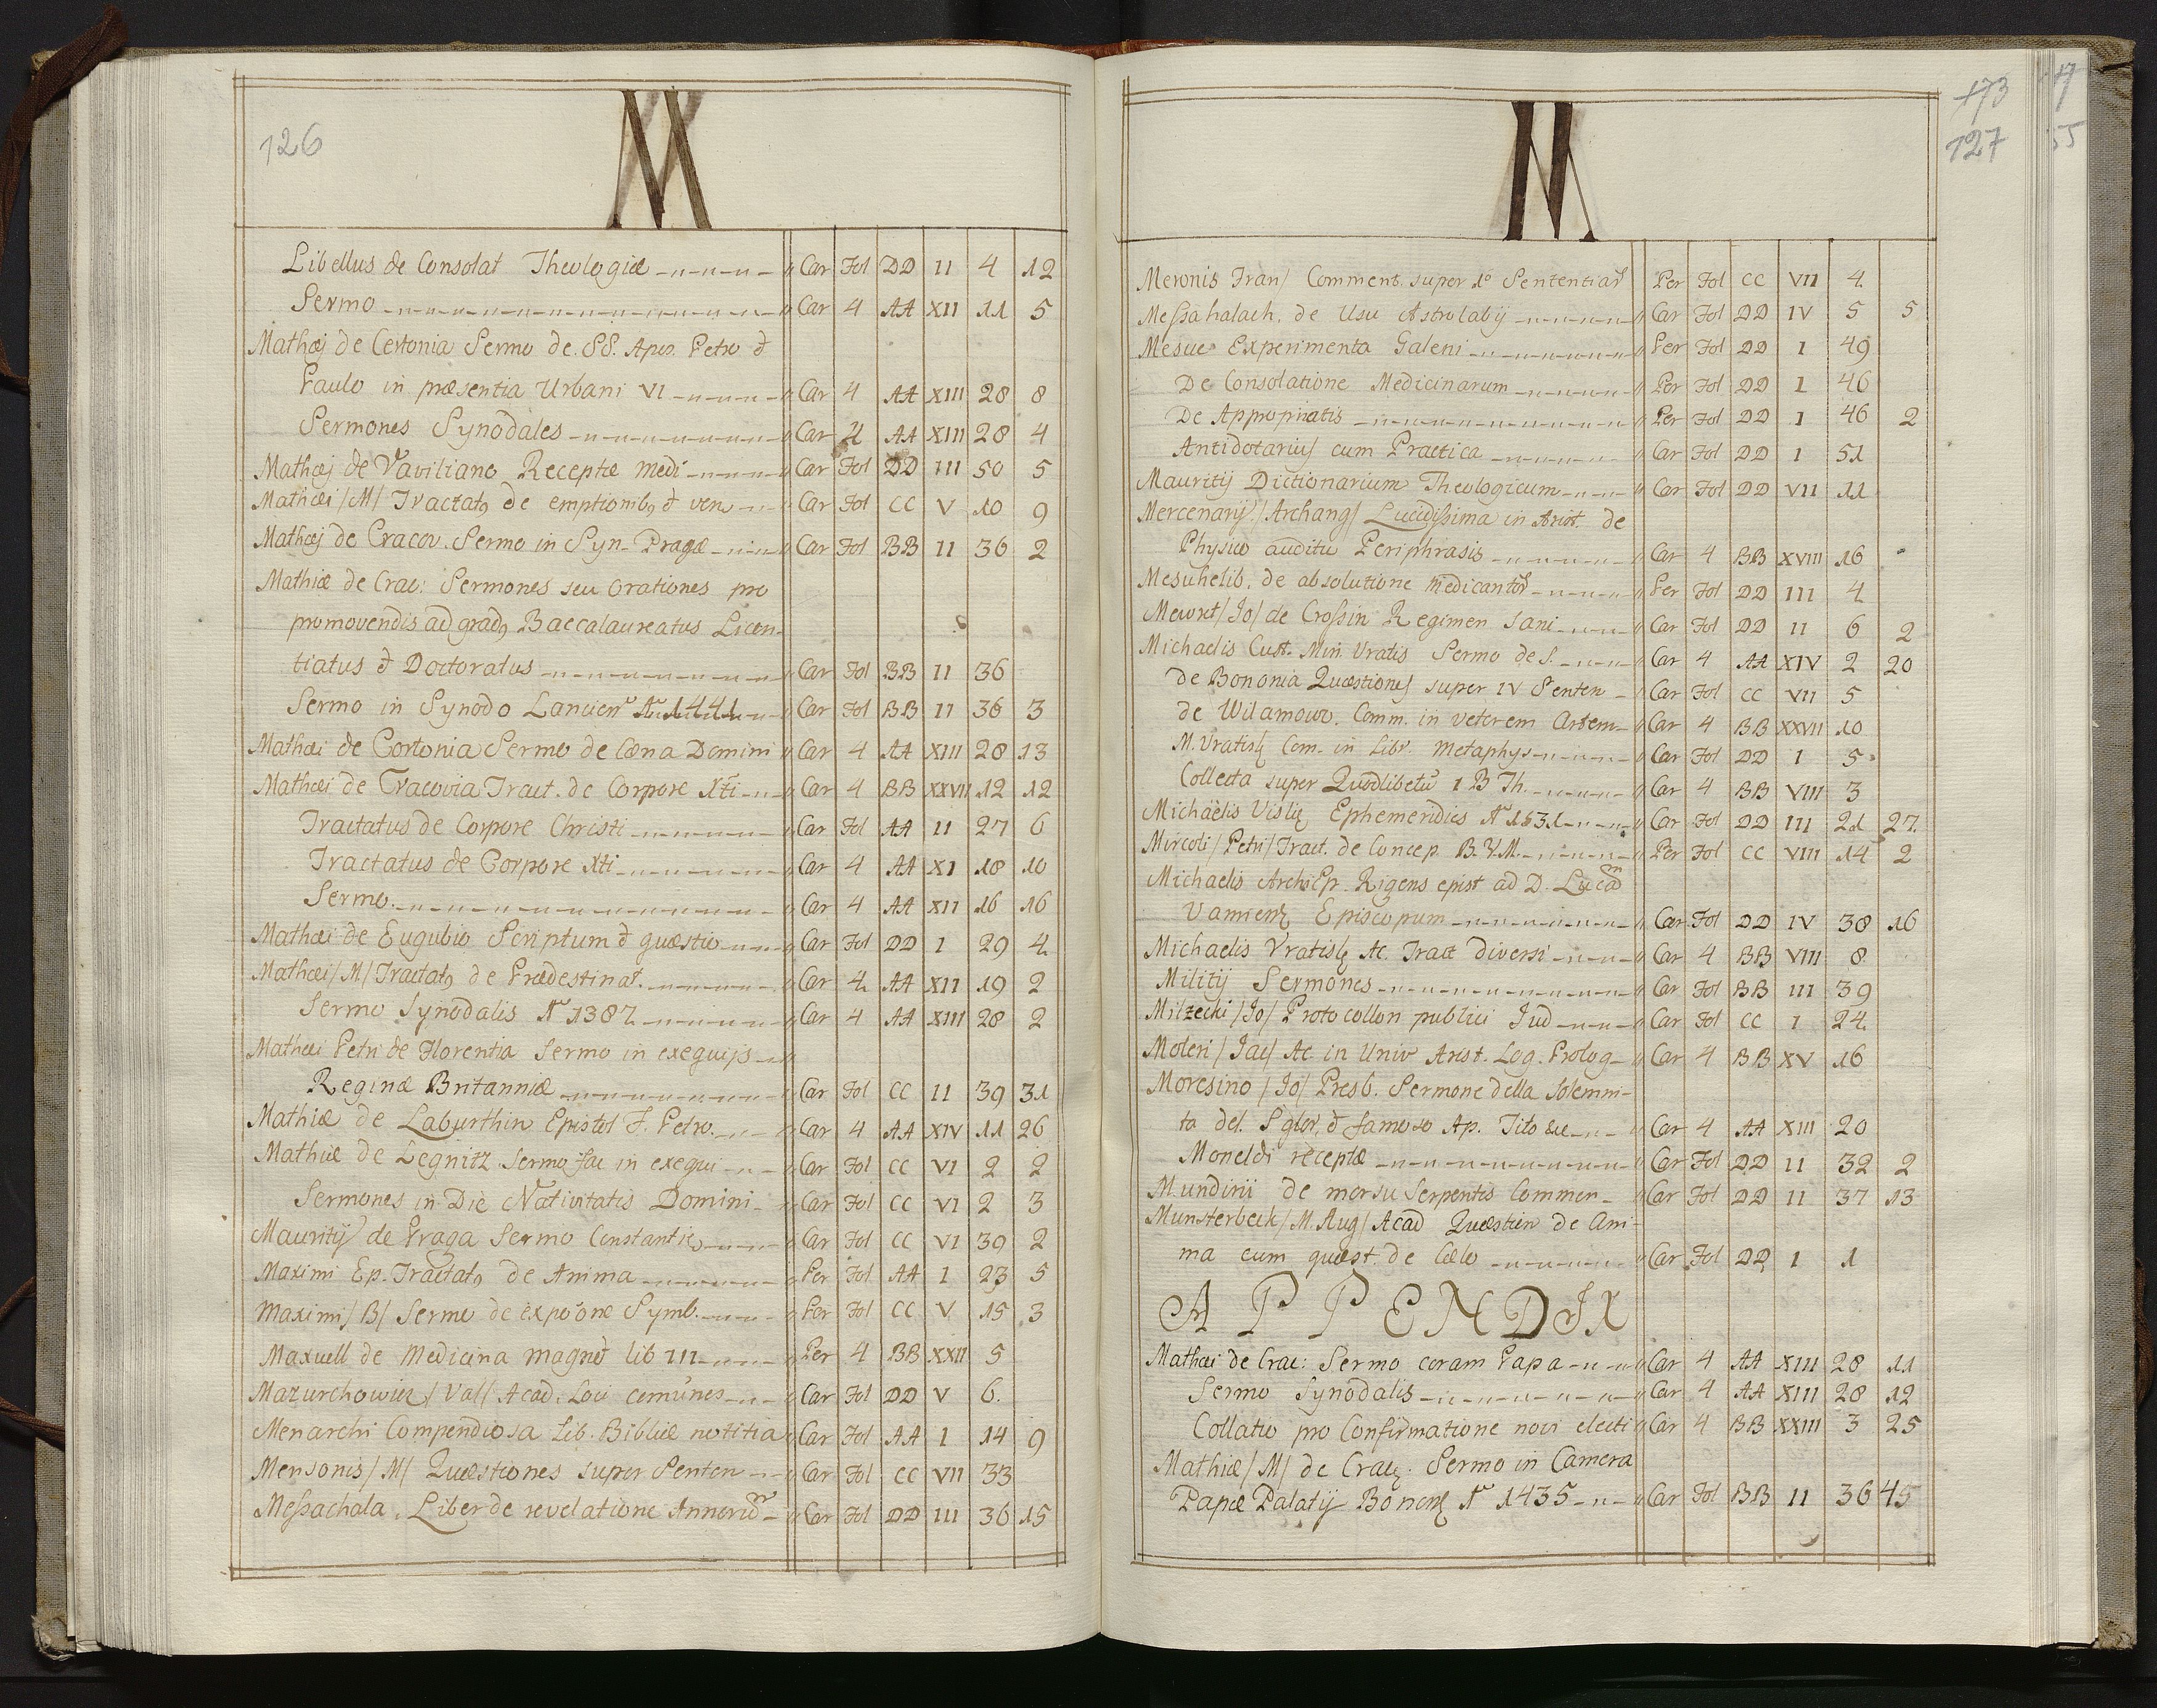 126
M
Libellus de Consolat Theologiæ Car Fol DD II 4 12
Sermo Car 4 AA XII 11 5
Mathæj de Certonia Sermo de SS. Apos. Petro &
Paulo in præsentia Urbani VI Car 4 AA XIII 28 8
Sermones Synodales Car 4 AA XIII 28 4
Mathæj de Vaviliano Receptæ medi Car Fol DD III 50 5
Mathæi /M/ Tractatq de emptionibq & ven Car Fol CC V 10 9
Mathæj de Cracov. Sermo in Syn. Pragæ Car Fol BB II 36 2
Mathiæ de Crac: Sermones seu Orationes pro
promovendis ad gradq Baccalaureatus Licen-
tiatus & Doctoratus Car Fol BB II 36
Sermo in Synodo Lancien Aº 1441 Car Fol BB II 36 3
Mathæi de Cortonia Sermo de Cæna Domini Car 4 AA XIII 28 13
Mathæi de Cracovia Tract. de Corpore Xti Car 4 BB XXVII 12 12
Tractatus de Corpore Christi Car Fol AA II 27 6
Tractatus de Corpore Xti Car 4 AA XI 18 10
Sermo. Car 4 AA XII 16 16
Mathæi de Eugubio Scriptum & quæstio Car Fol DD I 29 4
Mathæi /M/ Tractatq de Prædestinat. Car 4 AA XII 19 2
Sermo Synodalis Aº 1387 Car 4 AA XIII 28 2
Mathæi Petri de Florentia Sermo in exequijs
Reginæ Britanniæ Car Fol CC II 39 31
Mathiæ de Laburthin Epistol F. Petro. Car 4 AA XIV 11 26
Mathiæ de Legnitz Sermo fac in exequi Car Fol CC VI 2 2
Sermones in Die Nativitatis Domini Car Fol CC VI 2 3
Mauritij de Praga Sermo Constantiæ Car Fol CC VI 39 2
Maximi Ep. Tractatq de Anima Per Fol AA I 23 5
Maximi /B/ Sermo de expoone Symb. Per Fol CC V 15 3
Maxuell de Medicina magnet lib III Per 4 BB XXII 5
Mazurchowicz /Val/ Acad. Loci comunes Car Fol DD V 6.
Menarchi Compendiosa Lib. Bibliæ notitia Car Fol AA I 14 9
Mensonis /M/ Quæstiones super Senten Car Fol CC VII 33
Messachala. Liber de revelatione Annorum Car Fol DD III 36 15
173
127
M
Meronis Fran/ Comment. super 1º Sententiar Per Fol CC VII 4.
Messahalach. de Usu Astrolabij Car Fol DD IV 5 5
Mesue Experimenta Galeni Per Fol DD I 49
De Consolatione Medicinarum Per Fol DD I 46
De Appropriatis Per Fol DD I 46 2
Antidotarius cum Practica Car Fol DD I 51
Mauritij Dictionarium Theologicum Car Fol DD VII 11
Mercenarij /Archang/ Lucidissima in Arist. de
Physico auditu Periphrasis Car 4 BB XVIII 16
Mesuhelib. de absolutione medicantor Per Fol DD III 4
Meuret /Jo/ de Crossin Regimen Sani Car Fol DD II 6 2
Michaelis Cust. Min. Vratis Sermo de S. Car 4 AA XIV 2 20
de Bononia Quæstiones super IV Senten Car Fol CC VII 5
de Wilamow. Comm. in veterem Artem Car 4 BB XXVII 10
M. Vratisl Com. in Libr. metaphys Car Fol DD I 5
Collecta super Quodlibetu 1 B Th. Car 4 BB VIII 3
Michaëlis Vislic Ephemerides Aº 1531 Car Fol DD III 21 27
Mircoli /Petri/ Tract. de Concep. B.V.M. Per Fol CC VIII 14 2
Michaelis ArchiEp. Rigens epist ad D. Lucam
Varmiens Episcopum Car Fol DD IV 38 16
Michaelis Vratisl Ac. Tract Diversi Car 4 BB VIII 8
Militij Sermones Car Fol BB III 39
Milzecki /Jo/ Protocollon publici Jud Car Fol CC I 24
Moleri /Jac/ Ac. in Univ Arist. Log. Prolog Car 4 BB XV 16
Moresino /Jo/ Presb. Sermone della Solemni-
ta del. S glor. & famoso Ap. Tito &c Car 4 AA XIII 20
Moneldi receptæ Car Fol DD II 32 2
Mundini de morsu Serpentis Commen Car Fol DD II 37 13
Munsterbeck /M. Aug/ Acad Quæstion de Ani-
ma cum quæst. de Cælo Car Fol DD I 1
APPENDIX
Mathæi de Crac: Sermo coram Papa Car 4 AA XIII 28 11
Sermo Synodalis Car 4 AA XIII 28 12
Collatio pro Confirmatione novi electi Car 4 BB XXIII 3 25
Mathiæ /M/ de Crac. Sermo in Camera
Papæ Palatij Bonon Aº 1435 Car Fol BB II 36 45